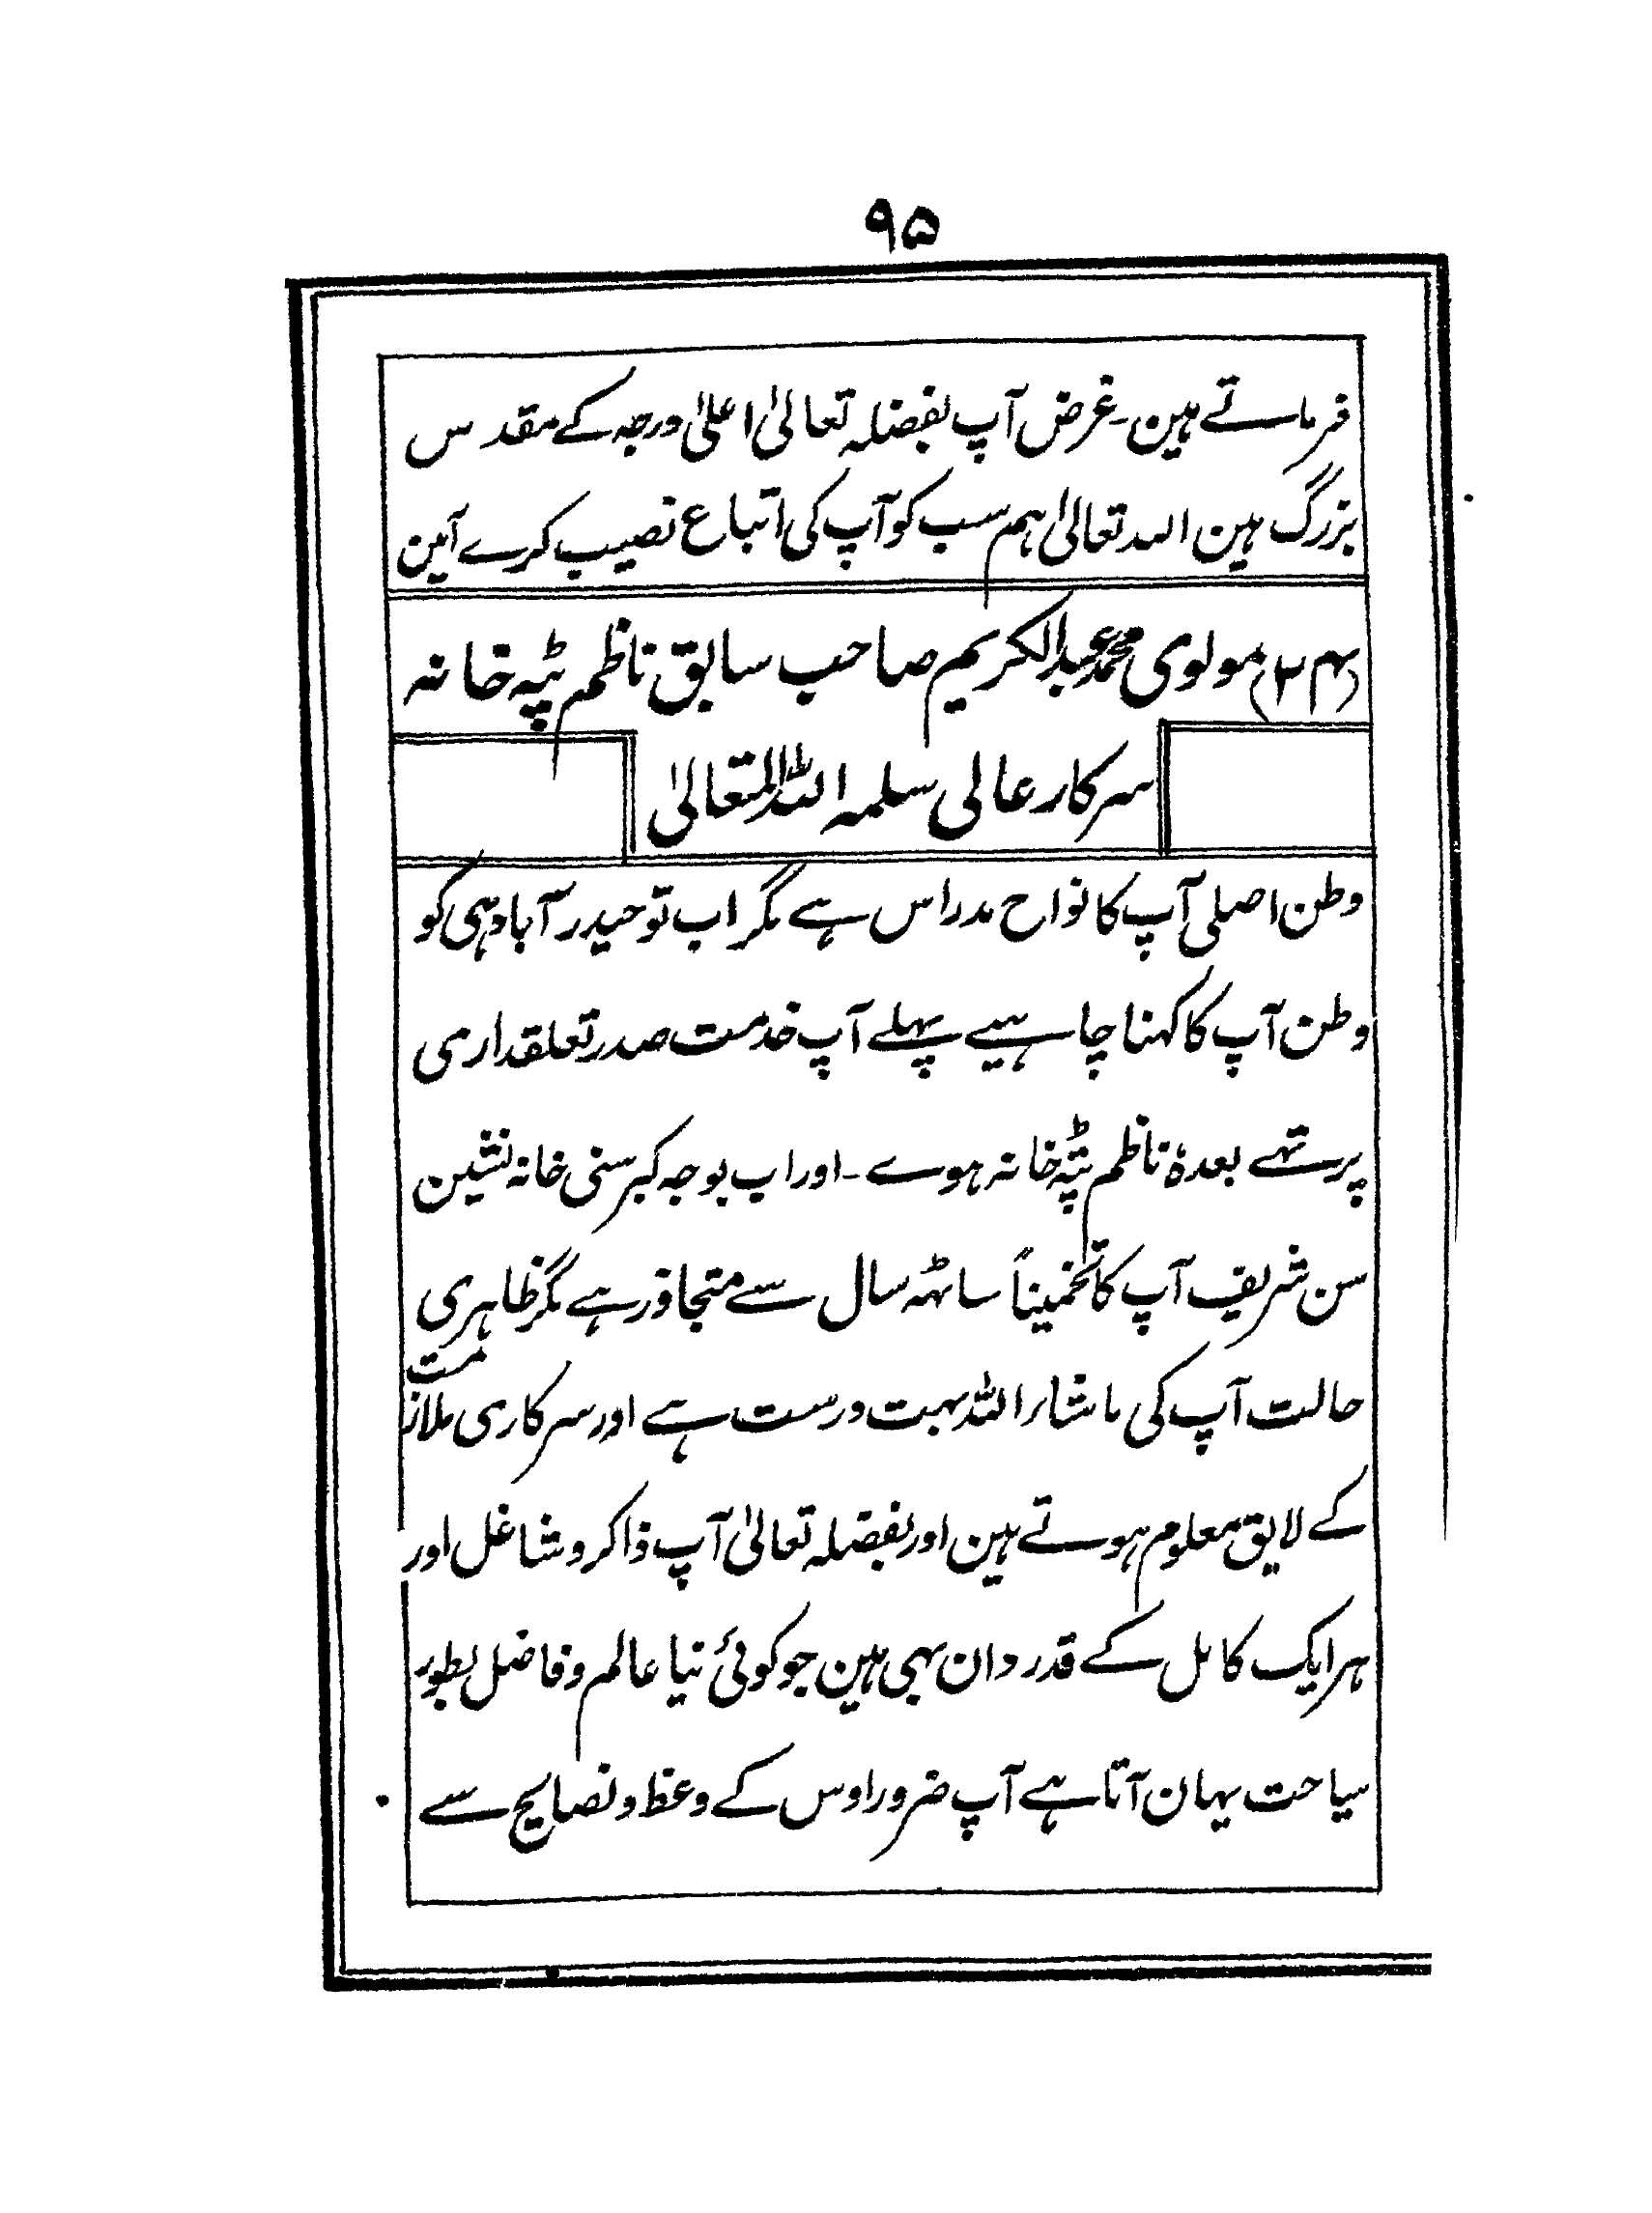 ۹۵
فرماتے ہین۔ غرض آپ بفضلہ تعالیٰ اعلیٰ درجہ کے مقدس
بزرگ ہین اللہ تعالیٰ ہم سب کو آپ کی اتباع نصیب کرے آمین
مولوی محمد عبدالکریم صاحب سابق ناظم ٹپہ خانہ
سرکار عالی سلمہ اللہ المتعالیٰ
وطن اصلی آپ کا نواح مدراس ہے مگر اب تو حیدرآباد ہی کو
وطن آپ کا کہنا چاہیے پہلے آپ خدمت صدر تعلقداری
پر تہے بعدہٗ ناظم ٹپہ خانہ ہوے۔ اور اب بوجہ کبر سنی خانہ نشین
سن شریف آپ کا تخمیناً ساٹہہ سال سے متجاوز ہے مگر ظاہری
حالت آپ کی ماشاء اللہ بہت درست ہے اور سرکاری ملازمت
کے لایق معلوم ہوتے ہین اور بفضلہ تعالیٰ آپ ذاکر و شاغل اور
ہر ایک کامل کے قدردان بہی ہین جو کوئی نیا عالم و فاضل بطور
سیاحت یہان آتا ہے آپ ضرور اوس کے وعظ و نصایح سے